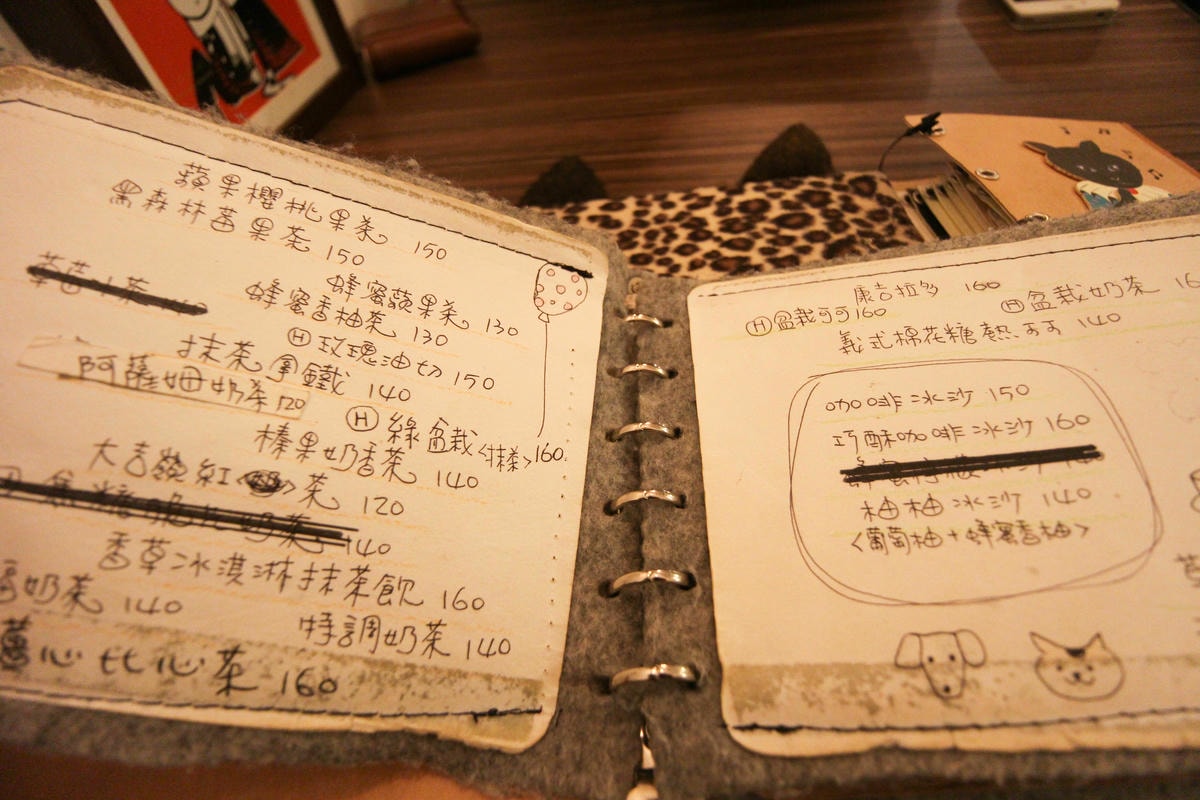 蘋果櫻桃果茶 150
黑森林莓果茶 150
蜂蜜蘋果茶 130
蜂蜜香柚茶 130
Ⓗ玫瑰油切 150
抹茶拿鐵 140
阿薩姆奶茶 120
Ⓗ 綠盆栽<抹茶>160
榛果奶香茶 140
大吉嶺紅茶 120
140
香草冰淇淋抹茶飲 160
奶茶 140
特調奶茶 140
心比心茶 160
康吉拉多 160
Ⓗ盆栽可可160
Ⓗ盆栽奶茶
義式棉花糖熱可可 140
咖啡冰沙 150
巧酥咖啡冰沙 160
柚柚冰沙 140
<葡萄柚+蜂蜜香柚>